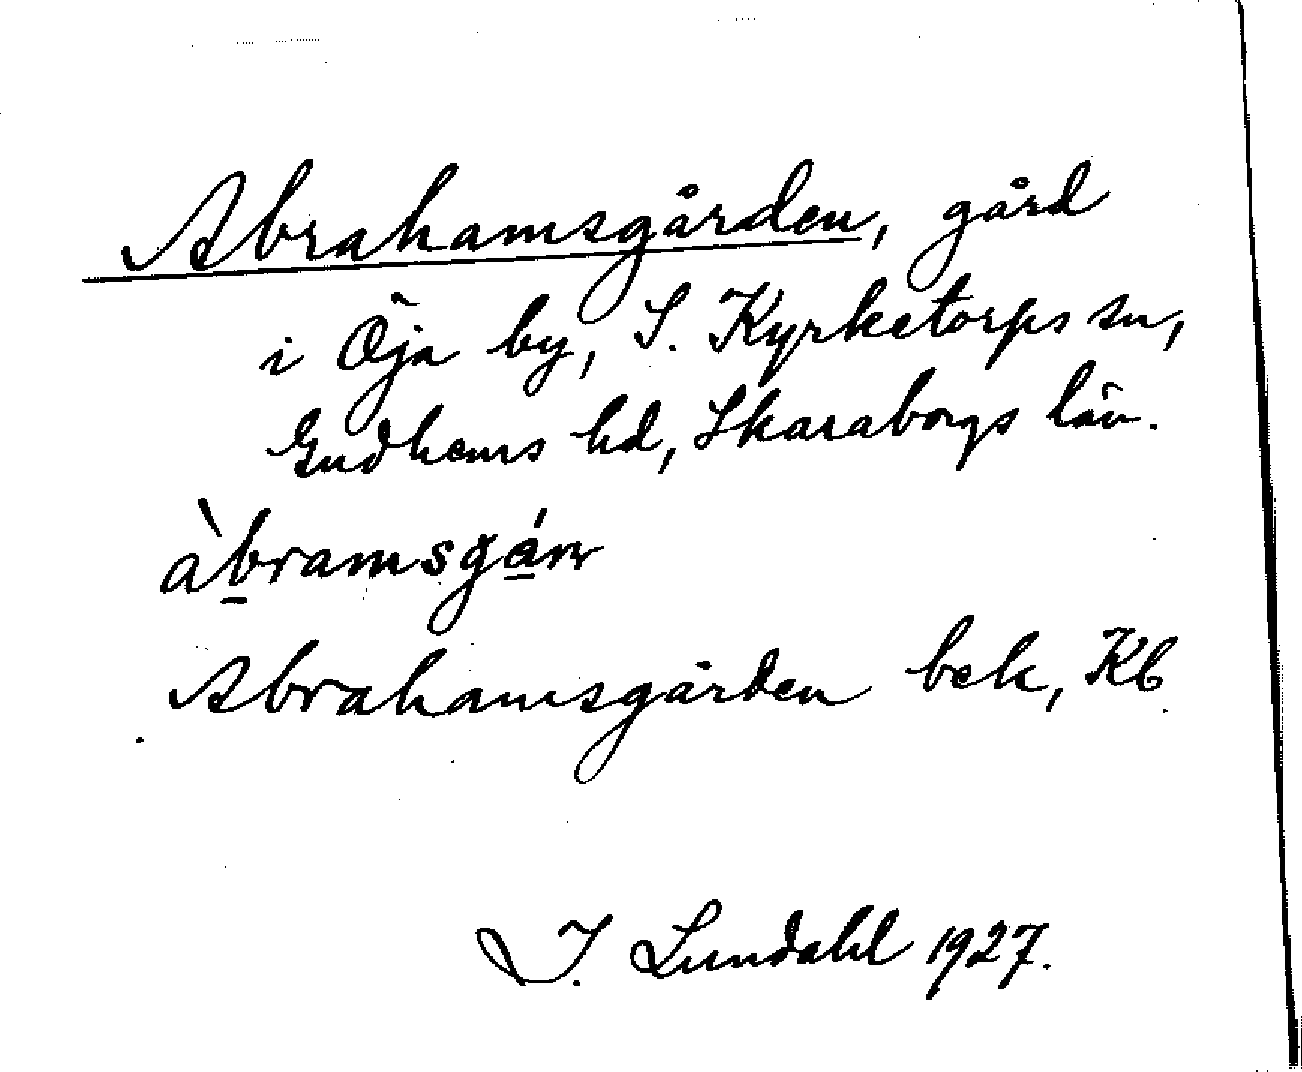 Abrahamsgården, gård
i Öja by, S. Kyrketorps sn,
Gudhems hd, Skaraborgs län.
Abrahamsgården bek, Kb
I. Lundahl 1927.